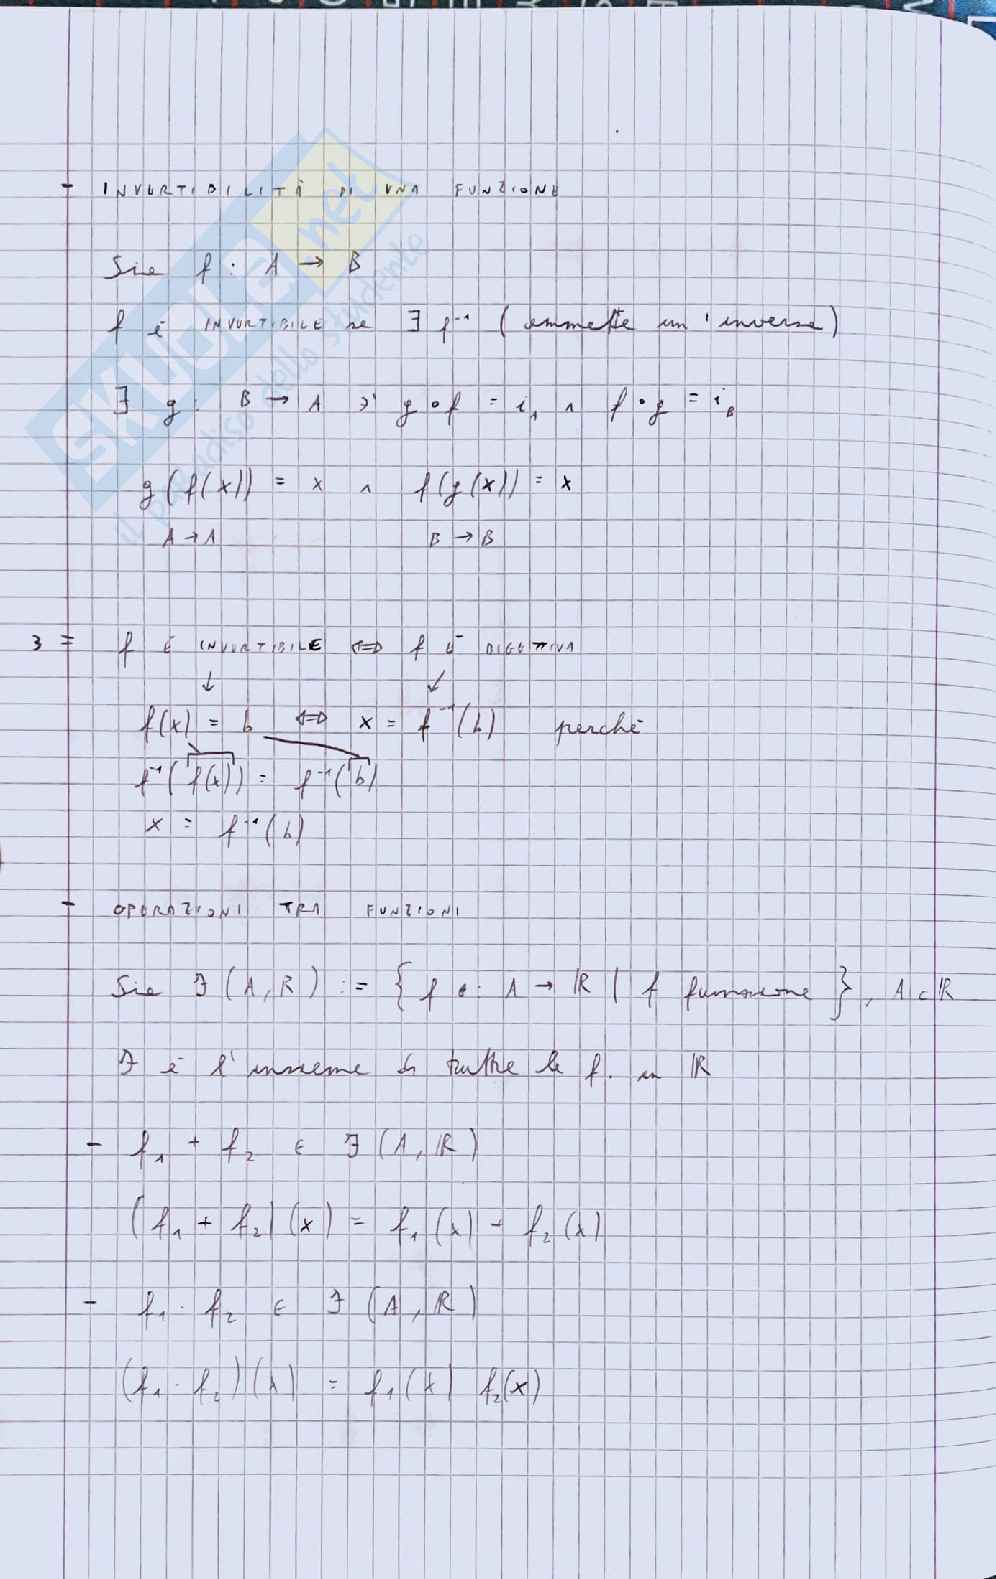 - INVERTIBILITÀ DI UNA FUNZIONE
Sia f : A → B
f è INVERTIBILE se ∃ f⁻¹ (ammette un'inversa)
∃ g : B → A ∋' g∘f = i_A ∧ f∘g = i_B
g(f(x)) = x ∧ f(g(x)) = x
A → A B → B
3 = f È INVERTIBILE ⟺ f È BIGETTIVA
↓ ↙
f(x) = b ⟺ x = f⁻¹(b) perché
f⁻¹(f(x)) = f⁻¹(b)
x = f⁻¹(b)
- OPERAZIONI TRA FUNZIONI
Sia F(A, R) := { f : A → ℝ | f funzione }, A ⊂ ℝ
F è l'insieme di tutte le f. in ℝ
- f₁ + f₂ ∈ F(A, ℝ)
(f₁ + f₂)(x) = f₁(x) + f₂(x)
- f₁ · f₂ ∈ F(A, ℝ)
(f₁ · f₂)(x) = f₁(x) f₂(x)
SKUOLA.net
il paradiso dello studente